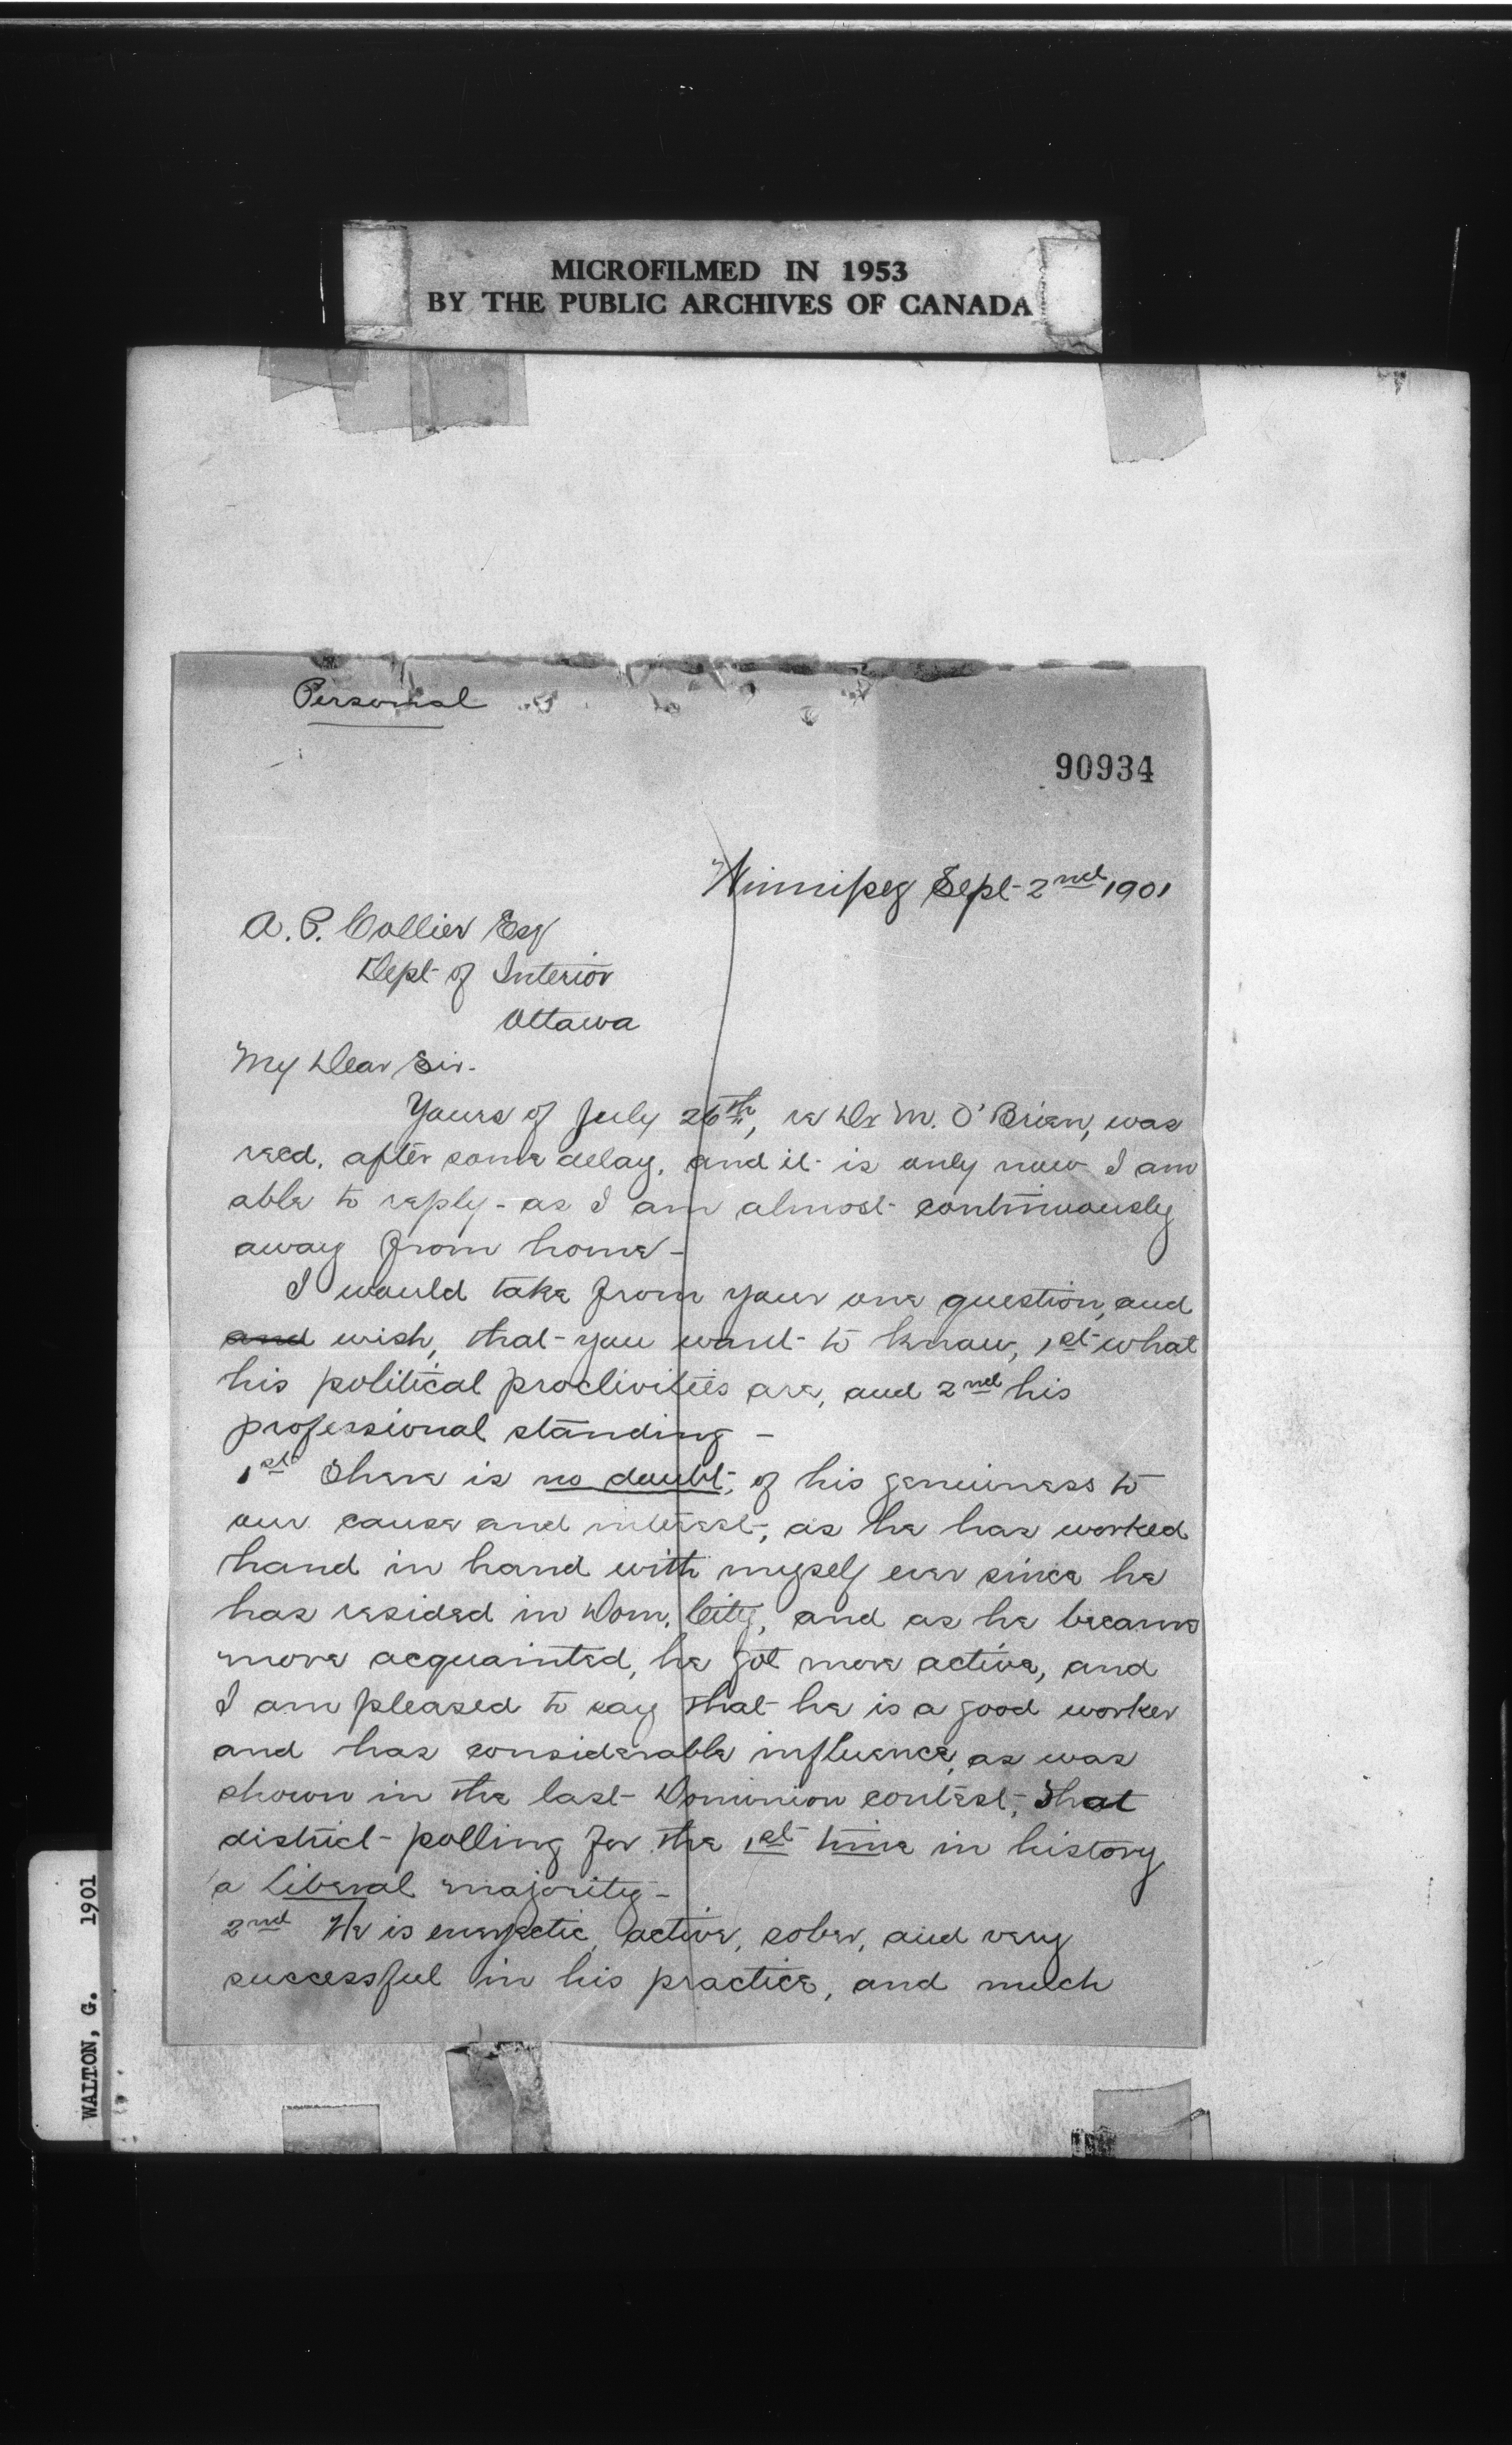 MICROFILMED IN 1953
BY THE PUBLIC ARCHIVES OF CANADA
Personal
90934
Winnipeg Sept 2nd 1901
A. P. Collier Esq
Dept of Interior
Ottawa
My Dear Sir.
Yours of July 26th, re Dr M. O'Brien, was
recd. after some delay, and it is only now I am
able to reply - as I am almost continuously
away from home -
I would take from your one question, and
and wish, that you want to know, 1st what
his political proclivities are, and 2nd his
professional standing -
1st There is no doubt, of his genuiness to
our cause and interest, as he has worked
hand in hand with myself ever since he
has resided in Dom. City, and as he became
more acquainted, he got more active, and
I am pleased to say that he is a good worker
and has considerable influence, as was
shown in the last Dominion contest, that
district polling for the 1st time in history
a Liberal majority -
2nd He is energectic, active, sober, and very
successful in his practice, and much
WALTON, G. 1901